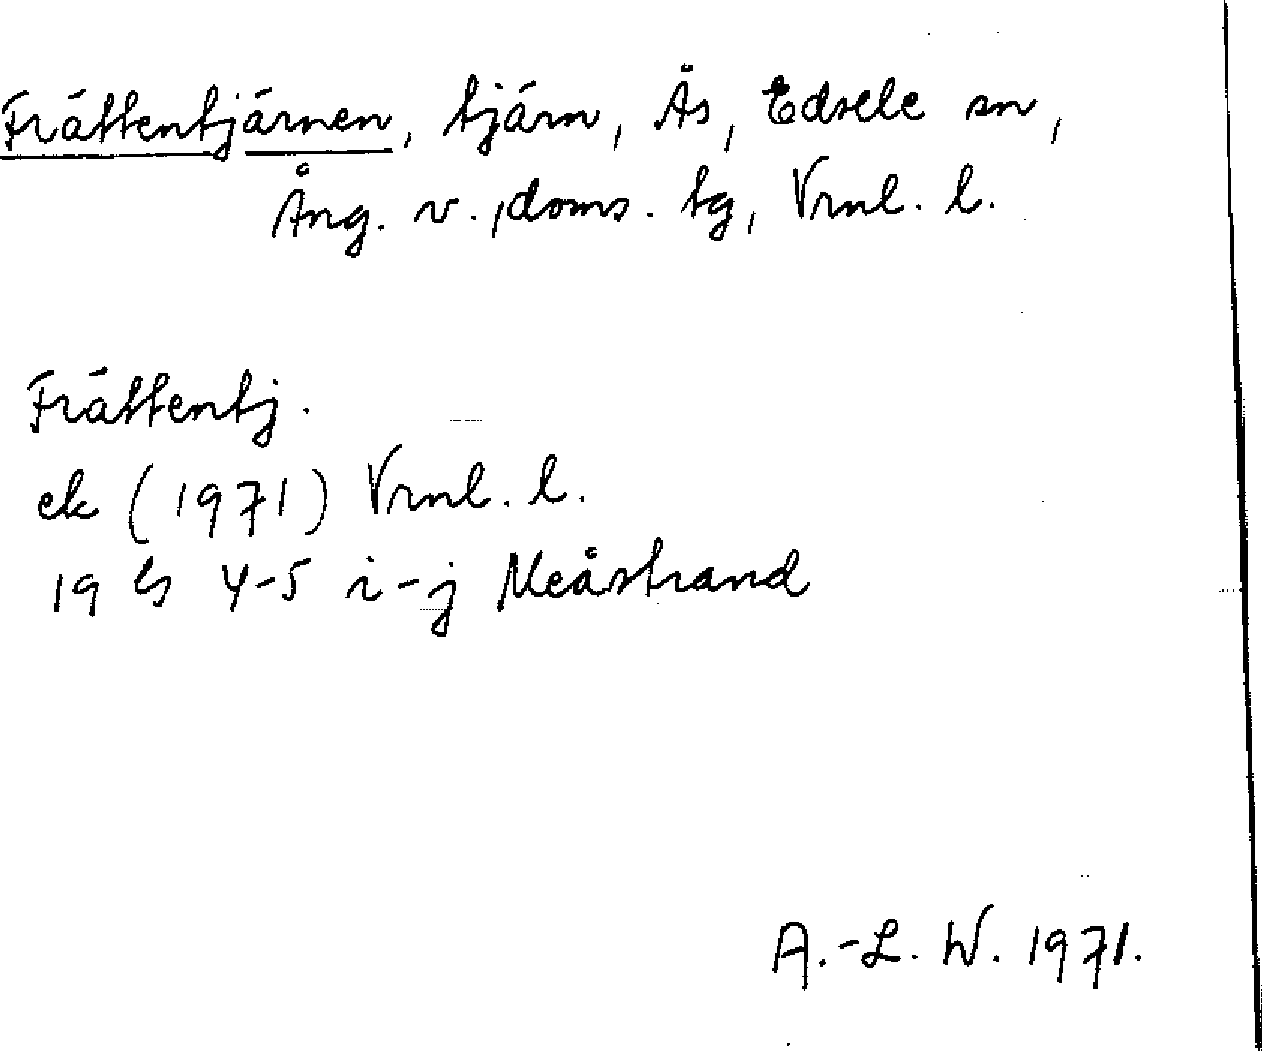 Frättentjärnen, tjärn, Ås, Edsele sn,
Ång. v. doms. tg, Vrnl. l.
Frättentj.
ek (1971) Vrnl. l.
19 G 4-5 i-j Meåstrand
A.-L. W. 1971.